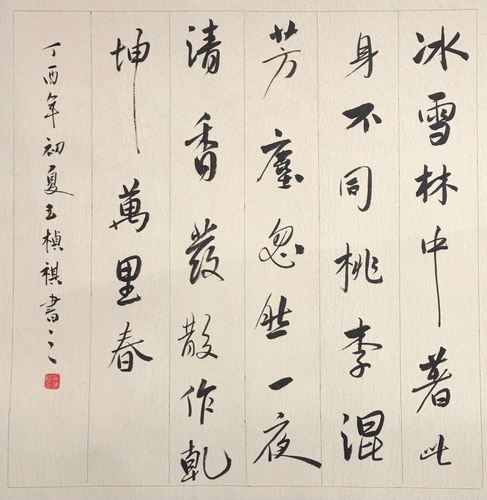 冰雪林中著此
身不同桃李混
芳塵忽然一夜
清香發散作乾
坤萬里春
丁酉年初夏王楨祺書